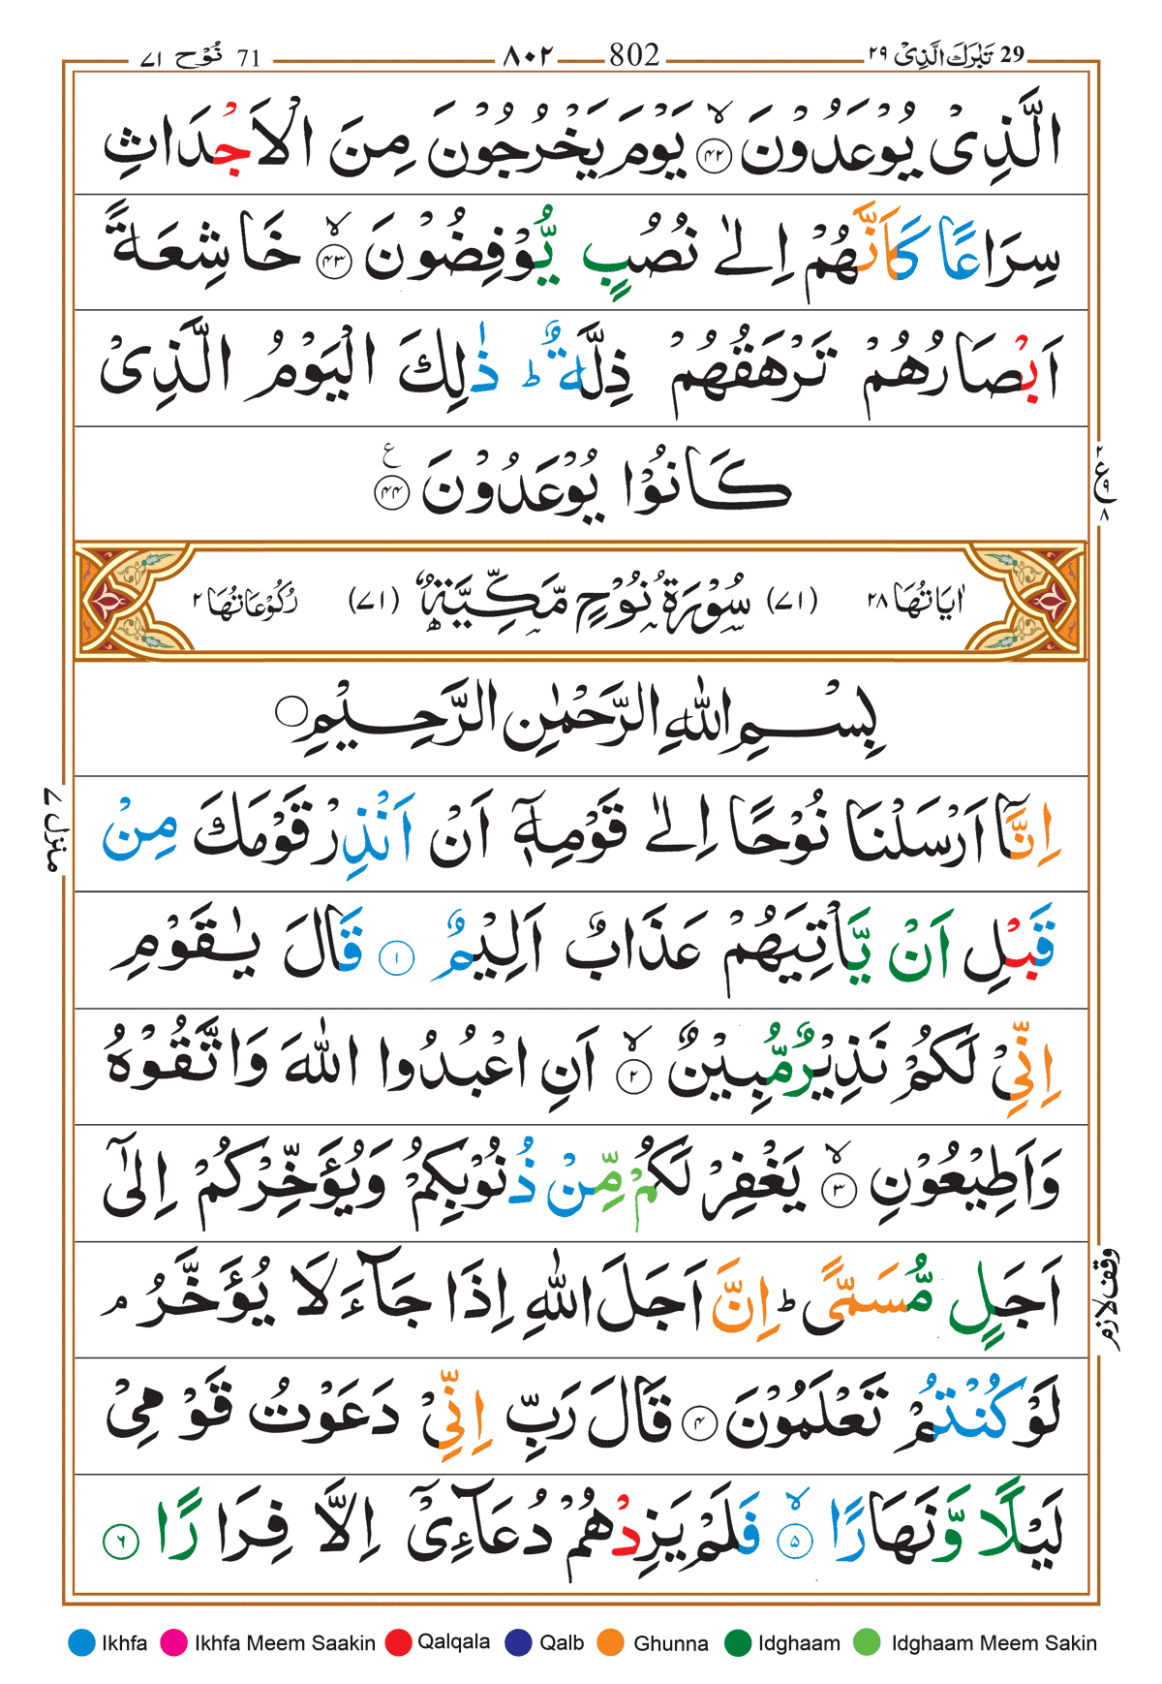 29 تَبٰرَكَ الَّذِیْ ٢٩ 802 ٨٠٢ 71 نُوْح ٧١
الَّذِیْ یُوْعَدُوْنَ ۙ﴿۴۲﴾ یَوْمَ یَخْرُجُوْنَ مِنَ الْاَجْدَاثِ
سِرَاعًا كَاَنَّهُمْ اِلٰی نُصُبٍ یُّوْفِضُوْنَ ۙ﴿۴۳﴾ خَاشِعَةً
اَبْصَارُهُمْ تَرْهَقُهُمْ ذِلَّةٌ ؕ ذٰلِكَ الْیَوْمُ الَّذِیْ
كَانُوْا یُوْعَدُوْنَ ﴿۴۴﴾ ع
٢ ع ٩ ٨
اٰیَاتُهَا ٢٨ (٧١) سُوْرَةُ نُوْحٍ مَّكِّیَّةٌ (٧١) رُكُوْعَاتُهَا ٢
بِسْمِ اللّٰهِ الرَّحْمٰنِ الرَّحِیْمِ
منزل ٧
اِنَّاۤ اَرْسَلْنَا نُوْحًا اِلٰی قَوْمِهٖۤ اَنْ اَنْذِرْ قَوْمَكَ مِنْ
قَبْلِ اَنْ یَّاْتِیَهُمْ عَذَابٌ اَلِیْمٌ ﴿۱﴾ قَالَ یٰقَوْمِ
اِنِّیْ لَكُمْ نَذِیْرٌ مُّبِیْنٌ ۙ﴿۲﴾ اَنِ اعْبُدُوا اللّٰهَ وَاتَّقُوْهُ
وَاَطِیْعُوْنِ ۙ﴿۳﴾ یَغْفِرْ لَكُمْ مِّنْ ذُنُوْبِكُمْ وَیُؤَخِّرْكُمْ اِلٰۤی
اَجَلٍ مُّسَمًّی ؕ اِنَّ اَجَلَ اللّٰهِ اِذَا جَآءَ لَا یُؤَخَّرُ ۘ
وقف لازم
لَوْ كُنْتُمْ تَعْلَمُوْنَ ﴿۴﴾ قَالَ رَبِّ اِنِّیْ دَعَوْتُ قَوْمِیْ
لَیْلًا وَّنَهَارًا ۙ﴿۵﴾ فَلَمْ یَزِدْهُمْ دُعَآءِیْۤ اِلَّا فِرَارًا ﴿۶﴾
Ikhfa Ikhfa Meem Saakin Qalqala Qalb Ghunna Idghaam Idghaam Meem Sakin